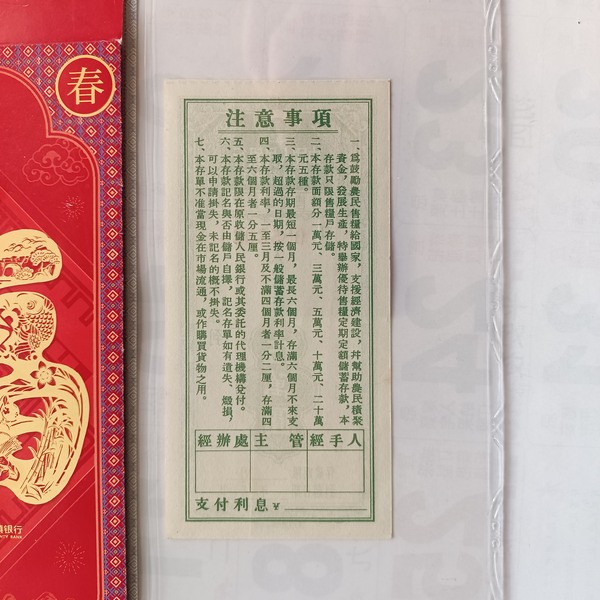 春
注意事項
一、爲鼓勵農民售糧給國家，支援經濟建設，幷幫助農民積聚
資金，發展生產，特舉辦優待售糧定期定額儲蓄存款，本
存款只限售糧戶存儲。
二、本存款面額分一萬元、三萬元、五萬元、十萬元、二十萬
元五種。
三、本存款存期最短一個月，最長六個月，存滿六個月不來支
取，超過的日期，按一般儲蓄存款利率計息。
四、本存款利率，一至三月及不滿四個月者一分二厘，存滿四
至六個月者一分五厘。
五、本存款限在原收儲人民銀行或其委托的代理機構兌付。
六、本存款記名與否由儲戶自擇，記名存單如有遺失、燬損，
可以申請掛失，未記名的概不掛失。
七、本存單不准當現金在市場流通，或作購買貨物之用。
經辦處 主管 經手人
支付利息￥
银行